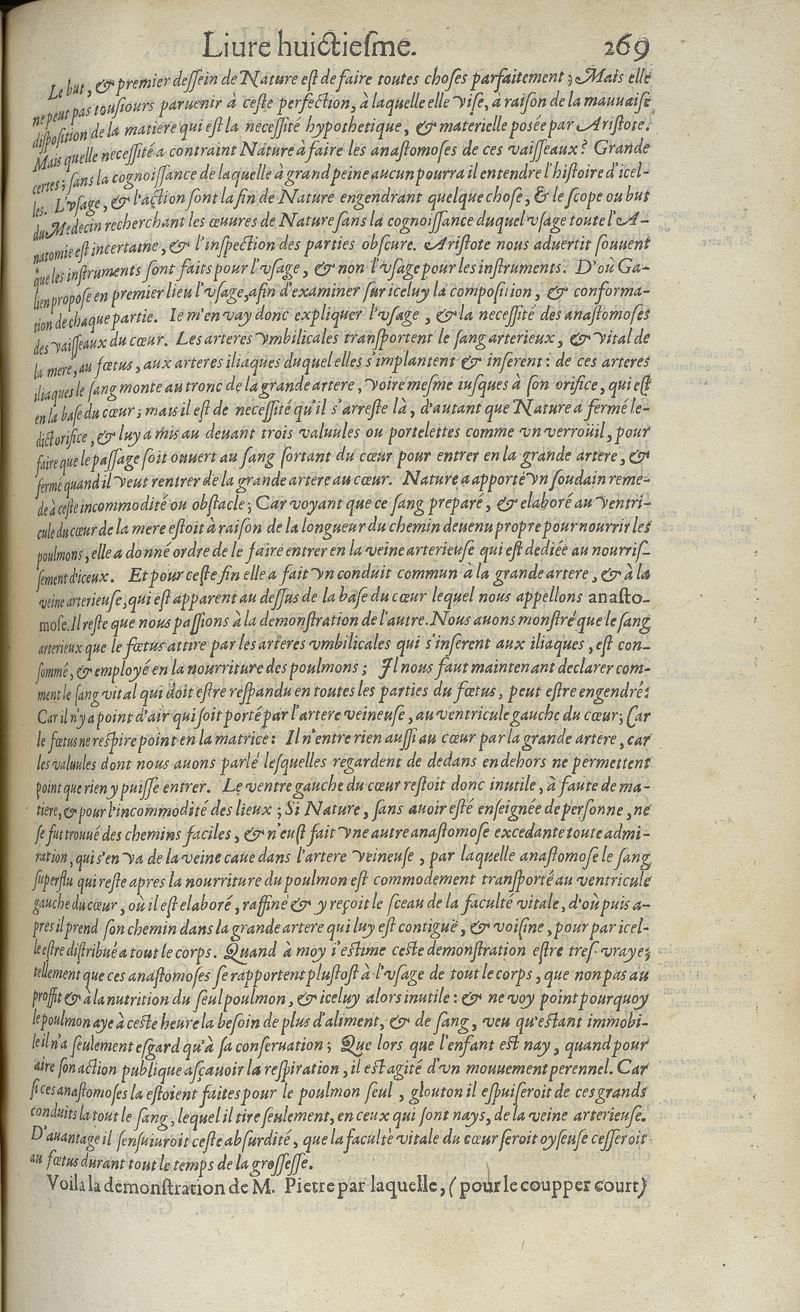 Liure huictiesme. 269
Le but, & premier dessein de Nature est de faire toutes choses parfaitement; Mais elle
ne peut pas tousiours paruenir à ceste perfection, à laquelle elle vise, a raison de la mauuaise
disposition de la matiere qui est la necessité hypothetique, & materielle posée par Aristote.
Mais quelle necessité a contraint Nature à faire les anastomoses de ces vaisseaux? Grande
certes; sans la cognoissance de laquelle à grand peine aucun pourra il entendre l'histoire d'icel-
les. L'vsage, & l'action sont la fin de Nature engendrant quelque chose, & le scope ou but
du Medecin recherchant les œuures de Nature sans la cognoissance duquel vsage toute l'A-
natomie est incertaine, & l'inspection des parties obscure. Aristote nous aduertit souuent
que les instruments sont faits pour l'vsage, & non l'vsage pour les instruments. D'où Ga-
lien propose en premier lieu l'vsage, afin d'examiner sur iceluy la composition, & conforma-
tion de chaque partie. Ie m'en vay donc expliquer l'vsage, & la necessité des anastomoses
des vaisseaux du cœur. Les arteres vmbilicales transportent le sang arterieux, & vital de
la mere, au fœtus, aux arteres iliaques duquel elles s'implantent & inserent: de ces arteres
iliaques le sang monte au tronc de la grande artere, voire mesme iusques à son orifice, qui est
en la base du cœur; mais il est de necessité qu'il s'arreste là, d'autant que Nature a fermé le-
dict orifice, & luy a mis au deuant trois valuules ou portelettes comme vn verroüil, pour
faire que le passage soit ouuert au sang sortant du cœur pour entrer en la grande artere, &
fermé quand il veut rentrer de la grande artere au cœur. Nature a apporté vn soudain reme-
de à ceste incommodité ou obstacle; Car voyant que ce sang preparé, & elaboré au ventri-
cule du cœur de la mere estoit à raison de la longueur du chemin deuenu propre pour nourrir les
poulmons, elle a donné ordre de le faire entrer en la veine arterieuse qui est dediée au nourris-
sement d'iceux. Et pour ceste fin elle a fait vn conduit commun à la grande artere, & à la
veine arterieuse, qui est apparent au dessus de la base du cœur lequel nous appellons anasto-
mose. Il reste que nous passions à la demonstration de l'autre. Nous auons monstré que le sang
arterieux que le fœtus attire par les arteres vmbilicales qui s'inserent aux iliaques, est con-
sommé, & employé en la nourriture des poulmons; Il nous faut maintenant declarer com-
ment le sang vital qui doit estre respandu en toutes les parties du fœtus, peut estre engendré:
Car il n'y a point d'air qui soit porté par l'artere veineuse, au ventricule gauche du cœur; Car
le fœtus ne respire point en la matrice: Il n'entre rien aussi au cœur par la grande artere, car
les valuules dont nous auons parlé lesquelles regardent de dedans en dehors ne permettent
point que rien y puisse entrer. Le ventre gauche du cœur restoit donc inutile, à faute de ma-
tiere, & pour l'incommodité des lieux; Si Nature, sans auoir esté enseignée de personne, ne
se fut trouué des chemins faciles, & n'eust fait vne autre anastomose excedante toute admi-
ration, qui s'en va de la veine caue dans l'artere veineuse, par laquelle anastomose le sang
superflu qui reste apres la nourriture du poulmon est commodement transporté au ventricule
gauche du cœur, où il est elaboré, raffiné & y reçoit le sceau de la faculté vitale, d'où puis a-
pres il prend son chemin dans la grande artere qui luy est contiguë, & voisine, pour par icel-
le estre distribué a tout le corps. Quand à moy i'estime ceste demonstration estre tres-vraye;
tellement que ces anastomoses se rapportent plustost à l'vsage de tout le corps, que non pas au
proffit & à la nutrition du seul poulmon, & iceluy alors inutile: & ne voy point pourquoy
le poulmon aye à ceste heure la besoin de plus d'aliment, & de sang, veu qu'estant immobi-
le il n'a seulement esgard qu'à sa conseruation; Que lors que l'enfant est nay, quand pour
aire son action publique asçauoir la respiration, il est agité d'vn mouuement perennel. Car
si ces anastomoses la estoient faites pour le poulmon seul, glouton il espuiseroit de ces grands
conduits la tout le sang, lequel il tire seulement, en ceux qui sont nays, de la veine arterieuse.
D'auantage il sensuiuroit ceste absurdité, que la faculté vitale du cœur seroit oyseuse cesseroit
au fœtus durant tout le temps de la grossesse.
Voila la demonstration de M. Pietre par laquelle, (pour le coupper court)